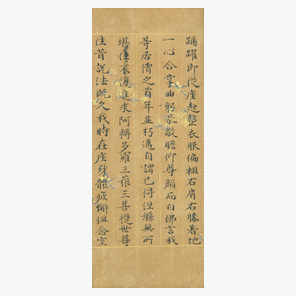 踊躍即從座起整衣服偏袒右肩右膝著地
一心合掌曲躬恭敬瞻仰尊顏而白佛言我
等居僧之首年並朽邁自謂已得涅槃無所
堪任不復進求阿耨多羅三藐三菩提世尊
往昔說法既久我時在座身體疲懈但念空